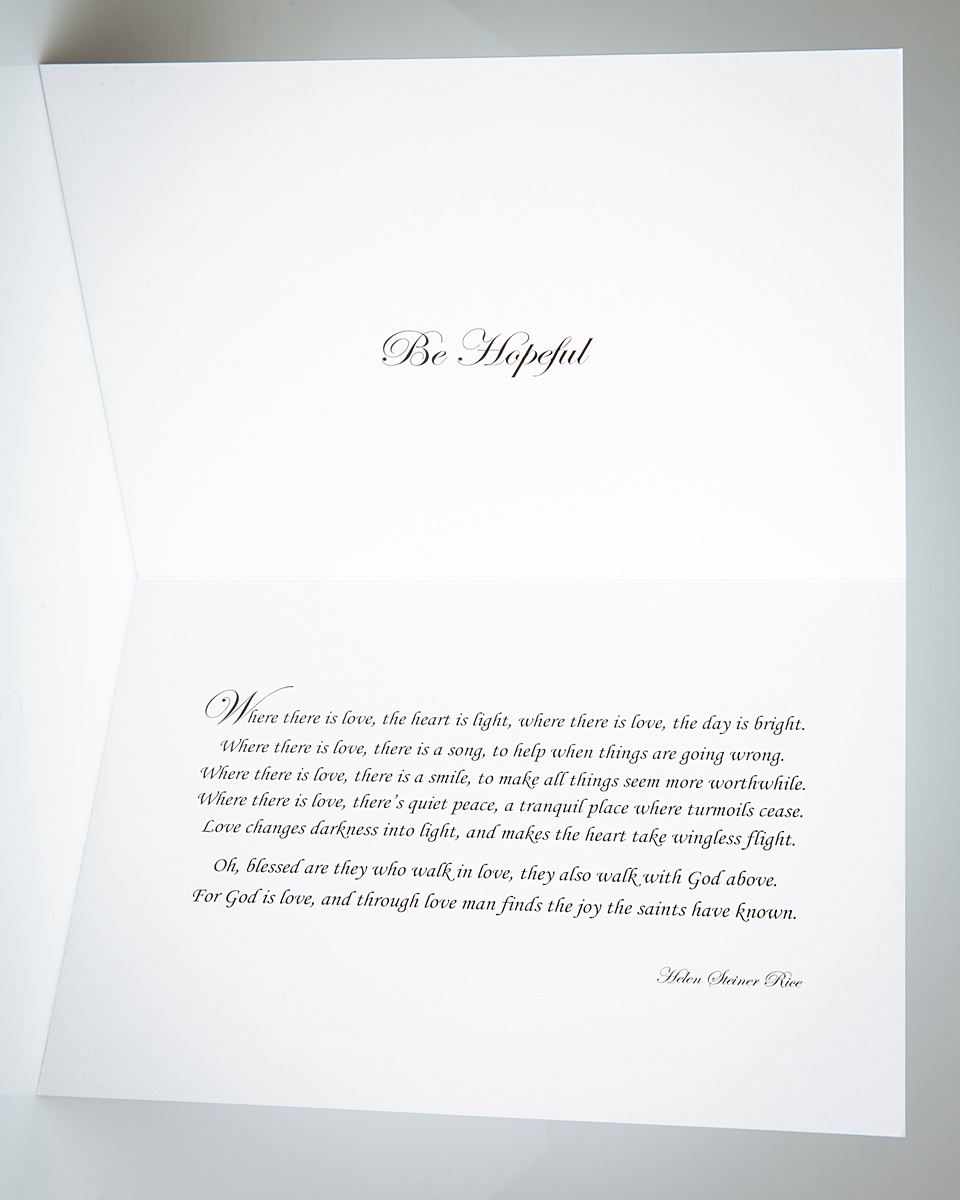 Be Hopeful
Where there is love, the heart is light, where there is love, the day is bright.
Where there is love, there is a song, to help when things are going wrong.
Where there is love, there is a smile, to make all things seem more worthwhile.
Where there is love, there's quiet peace, a tranquil place where turmoils cease.
Love changes darkness into light, and makes the heart take wingless flight.
Oh, blessed are they who walk in love, they also walk with God above.
For God is love, and through love man finds the joy the saints have known.
Helen Steiner Rice